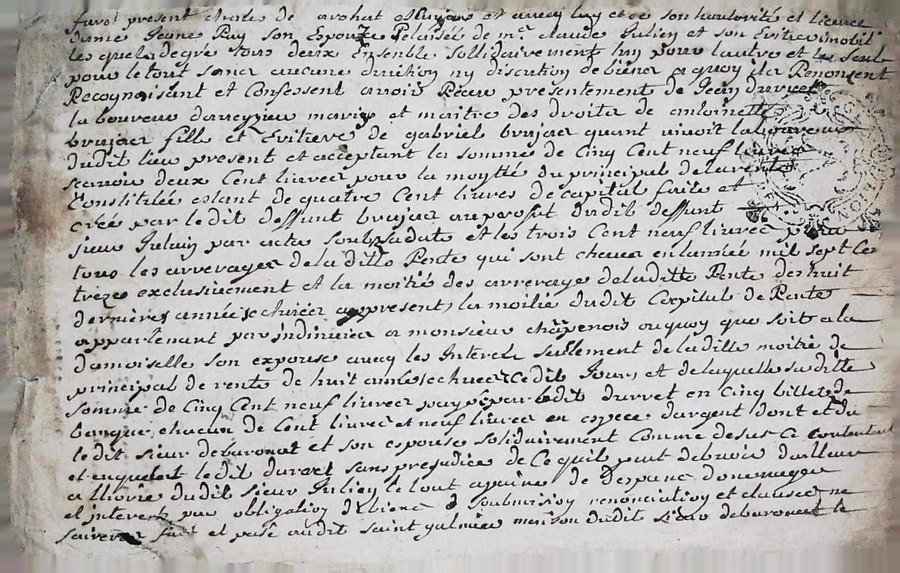 furet present charles de
dame Jeune Puy son Espouze de mr. claude Julien et son
les quels degré tous deux Ensemble sollidairement lun pour lautre et
pour le tout sans aucune division ny discution de biens a quoy ils Renoncent
Recognoissant et Confessent avoir Receu presentement de Jean durret
la boureur mary et maitre des droits de antoinette
brujas fille et Eritiere de gabriel brujas quant vivoit laboureur
dudit lieu present et acceptant la somme de Cinq Cent neuf livres
scavoir deux Cent livres pour la moytié du principal de la rente
Constituée estant de quatre Cent livres de capital faite et
créé par ledit deffunt brujas au proffit dudit deffunt
sieur Julien par acte soubz sa date et les trois Cent neuf livres pour
tous les arrerages de la ditte Rente qui sont cheus en lannée mil sept Ce
treze exclusivement et la moitié des arrerage de laditte Rente des huit
dernieres année echeües a present, la moitié dudit Capital de Rente
appartenant par indivis a monsieur chapenois ou quoy que soit a la
damoiselle son expouse avecq les Interets seullement de la ditte moitié de
principal de rente de huit années echuees Cedit Jour, et de laquelle susditte
somme de Cinq Cent neuf livres payé par ledit durret en Cinq billets de
banque chacun de Cent livres et neuf livres en espece dargent dont et du
ledit sieur de baronat et son espouse solidairement Comme desus Ce contentent
et en quitent ledit durret sans prejudice de Ce quil peut debvoir dailleurs
a lhoirie dudit sieur Julien le tout a paine de Despans domenages
et interets par obligation de biens soubmision renonciation et clauses
fait et pasé audit saint galmier maison dudit sieur de baronat le